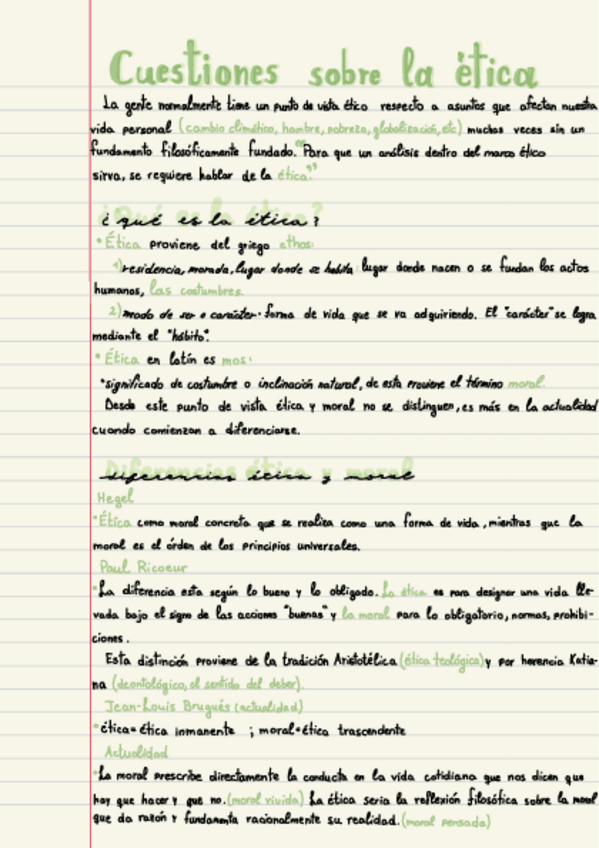 Cuestiones sobre la ética
La gente normalmente tiene un punto de vista ético respecto a asuntos que afectan nuestra
vida personal (cambio climático, hambre, pobreza, globalización, etc) muchas veces sin un
fundamento filosóficamente fundado. "Para que un análisis dentro del marco ético
sirva, se requiere hablar de la ética."
¿Qué es la ética?
¿qué es la ética?
•Ética proviene del griego ethos:
1) residencia, morada, lugar donde se habita: lugar donde nacen o se fundan los actos
humanos, las costumbres.
2) modo de ser o carácter: forma de vida que se va adquiriendo. El "carácter" se logra
mediante el "hábito".
•Ética en latín es mos:
•significado de costumbre o inclinación natural, de esta proviene el término moral.
Desde este punto de vista ética y moral no se distinguen, es más en la actualidad
cuando comienzan a diferenciarse.
Diferencias ética y moral
diferencias ética y moral
Hegel
•Ética como moral concreta que se realiza como una forma de vida, mientras que la
moral es el órden de los principios universales.
Paul Ricoeur
•La diferencia esta según lo bueno y lo obligado. La ética es para designar una vida lle-
vada bajo el signo de las acciones "buenas" y la moral para lo obligatorio, normas, prohibi-
ciones.
Esta distinción proviene de la tradición Aristotélica (ética teológica) y por herencia Katia-
na (deontológico, el sentido del deber).
Jean-Louis Brugués (actualidad)
•ética= ética inmanente ; moral=ética trascendente
Actualidad
•La moral prescribe directamente la conducta en la vida cotidiana que nos dicen que
hay que hacer y que no. (moral vivida) La ética seria la reflexión filosótica sobre la moral
que da razón y fundamenta racionalmente su realidad. (moral pensada)